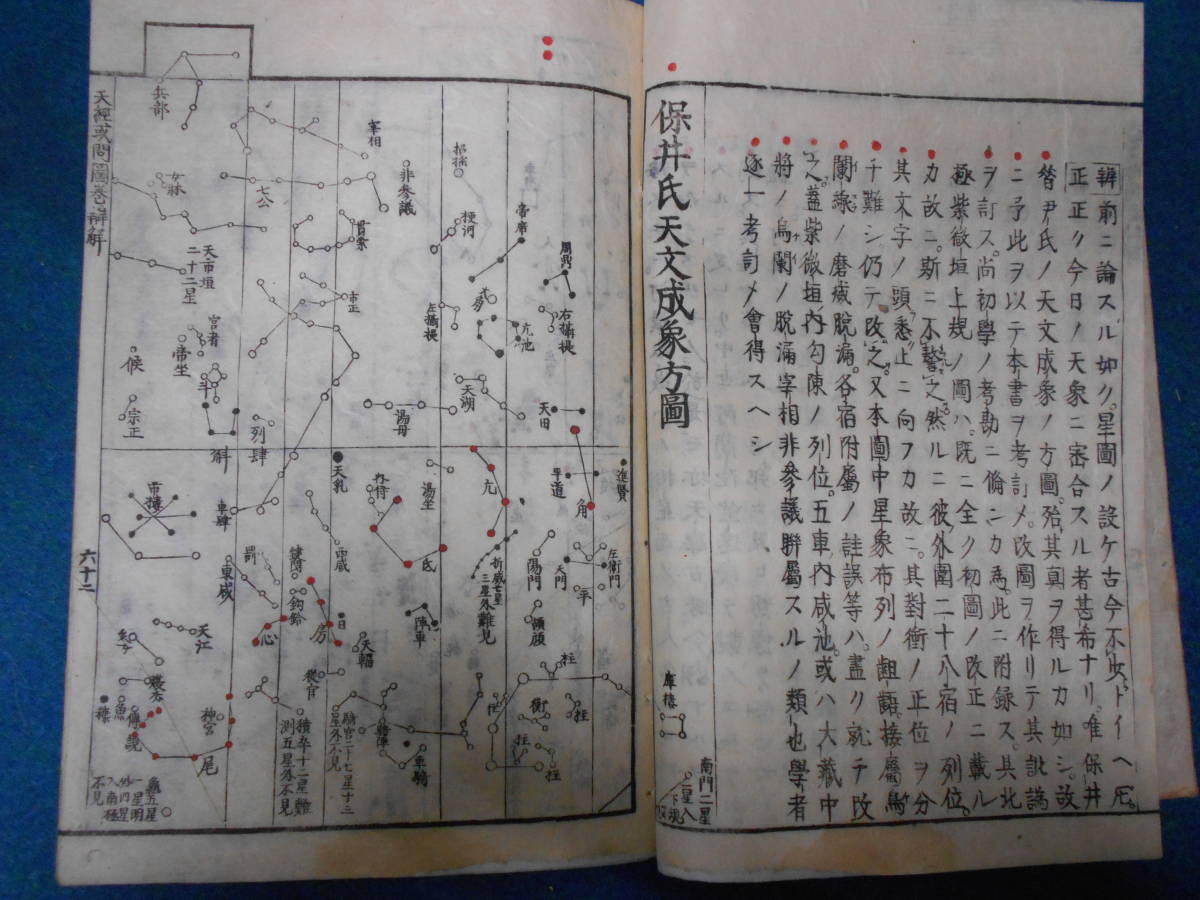 辨前ニ論スル如ク星圖ノ設ケ古今不少トイヘ𪜈
正正ク今日ノ天象ニ宻合スル者甚布ナリ唯保井
督尹氏ノ天文成象ノ方圖殆其真ヲ得ルカ如シ故
ニ予此ヲ以テ本書ヲ考訂メ改圖ヲ作リテ其訛謬
ヲ訂ス尚初學ノ考勘ニ備ンカ為此ニ附録ス其北
極紫微垣上規ノ圖ハ既ニ全ク初圖ノ改正ニ載ル
カ故ニ斯ニ不贅之然ルニ彼外圍二十八宿ノ列位
其文字ノ頭悉上ニ向フカ故ニ其對衝ノ正位ヲ分
千難シ仍テ改之又本圖中星象布列ノ齟齬接屬
ノ磨滅脱漏各宿附屬ノ註誤等ハ盡ク就チ改
之蓋紫微垣内勾陳ノ列位五車内咸池或ハ大藏中
將ノ烏闌ノ脱漏宰相非參議聯屬スルノ類也學者
逐一考訂メ會得スヘシ
保井氏天文成象方圖
南門二星
二星入
下規
庫楼
進賢
左衛門
平
角
天田
天門
周鼎
右攝提
帝席
亢池
陽門
頓頑
柱
衡
柱
柱
柱
招揺
梗河
左攝提
天湖
亢
折威七星
三星外難見
非參議
宰相
湯母
湯坐
氐
陣車
車騎
貫索
市正
天乳
天輻
騎官二十七星十三
星外不見
房
日
鈎鈴
從官
積卒十二星難
測五星外不見
七公
列肆
車肆
罰
東咸
心
兵部
女牀
天市垣
二十二星
宦者
帝坐
候
斗
斛
宗正
市樓
天江
魚
傅説
神宮
尾
龜五星
一星明
外四星
入南極
不見
天經或問圖卷辨解
六十二